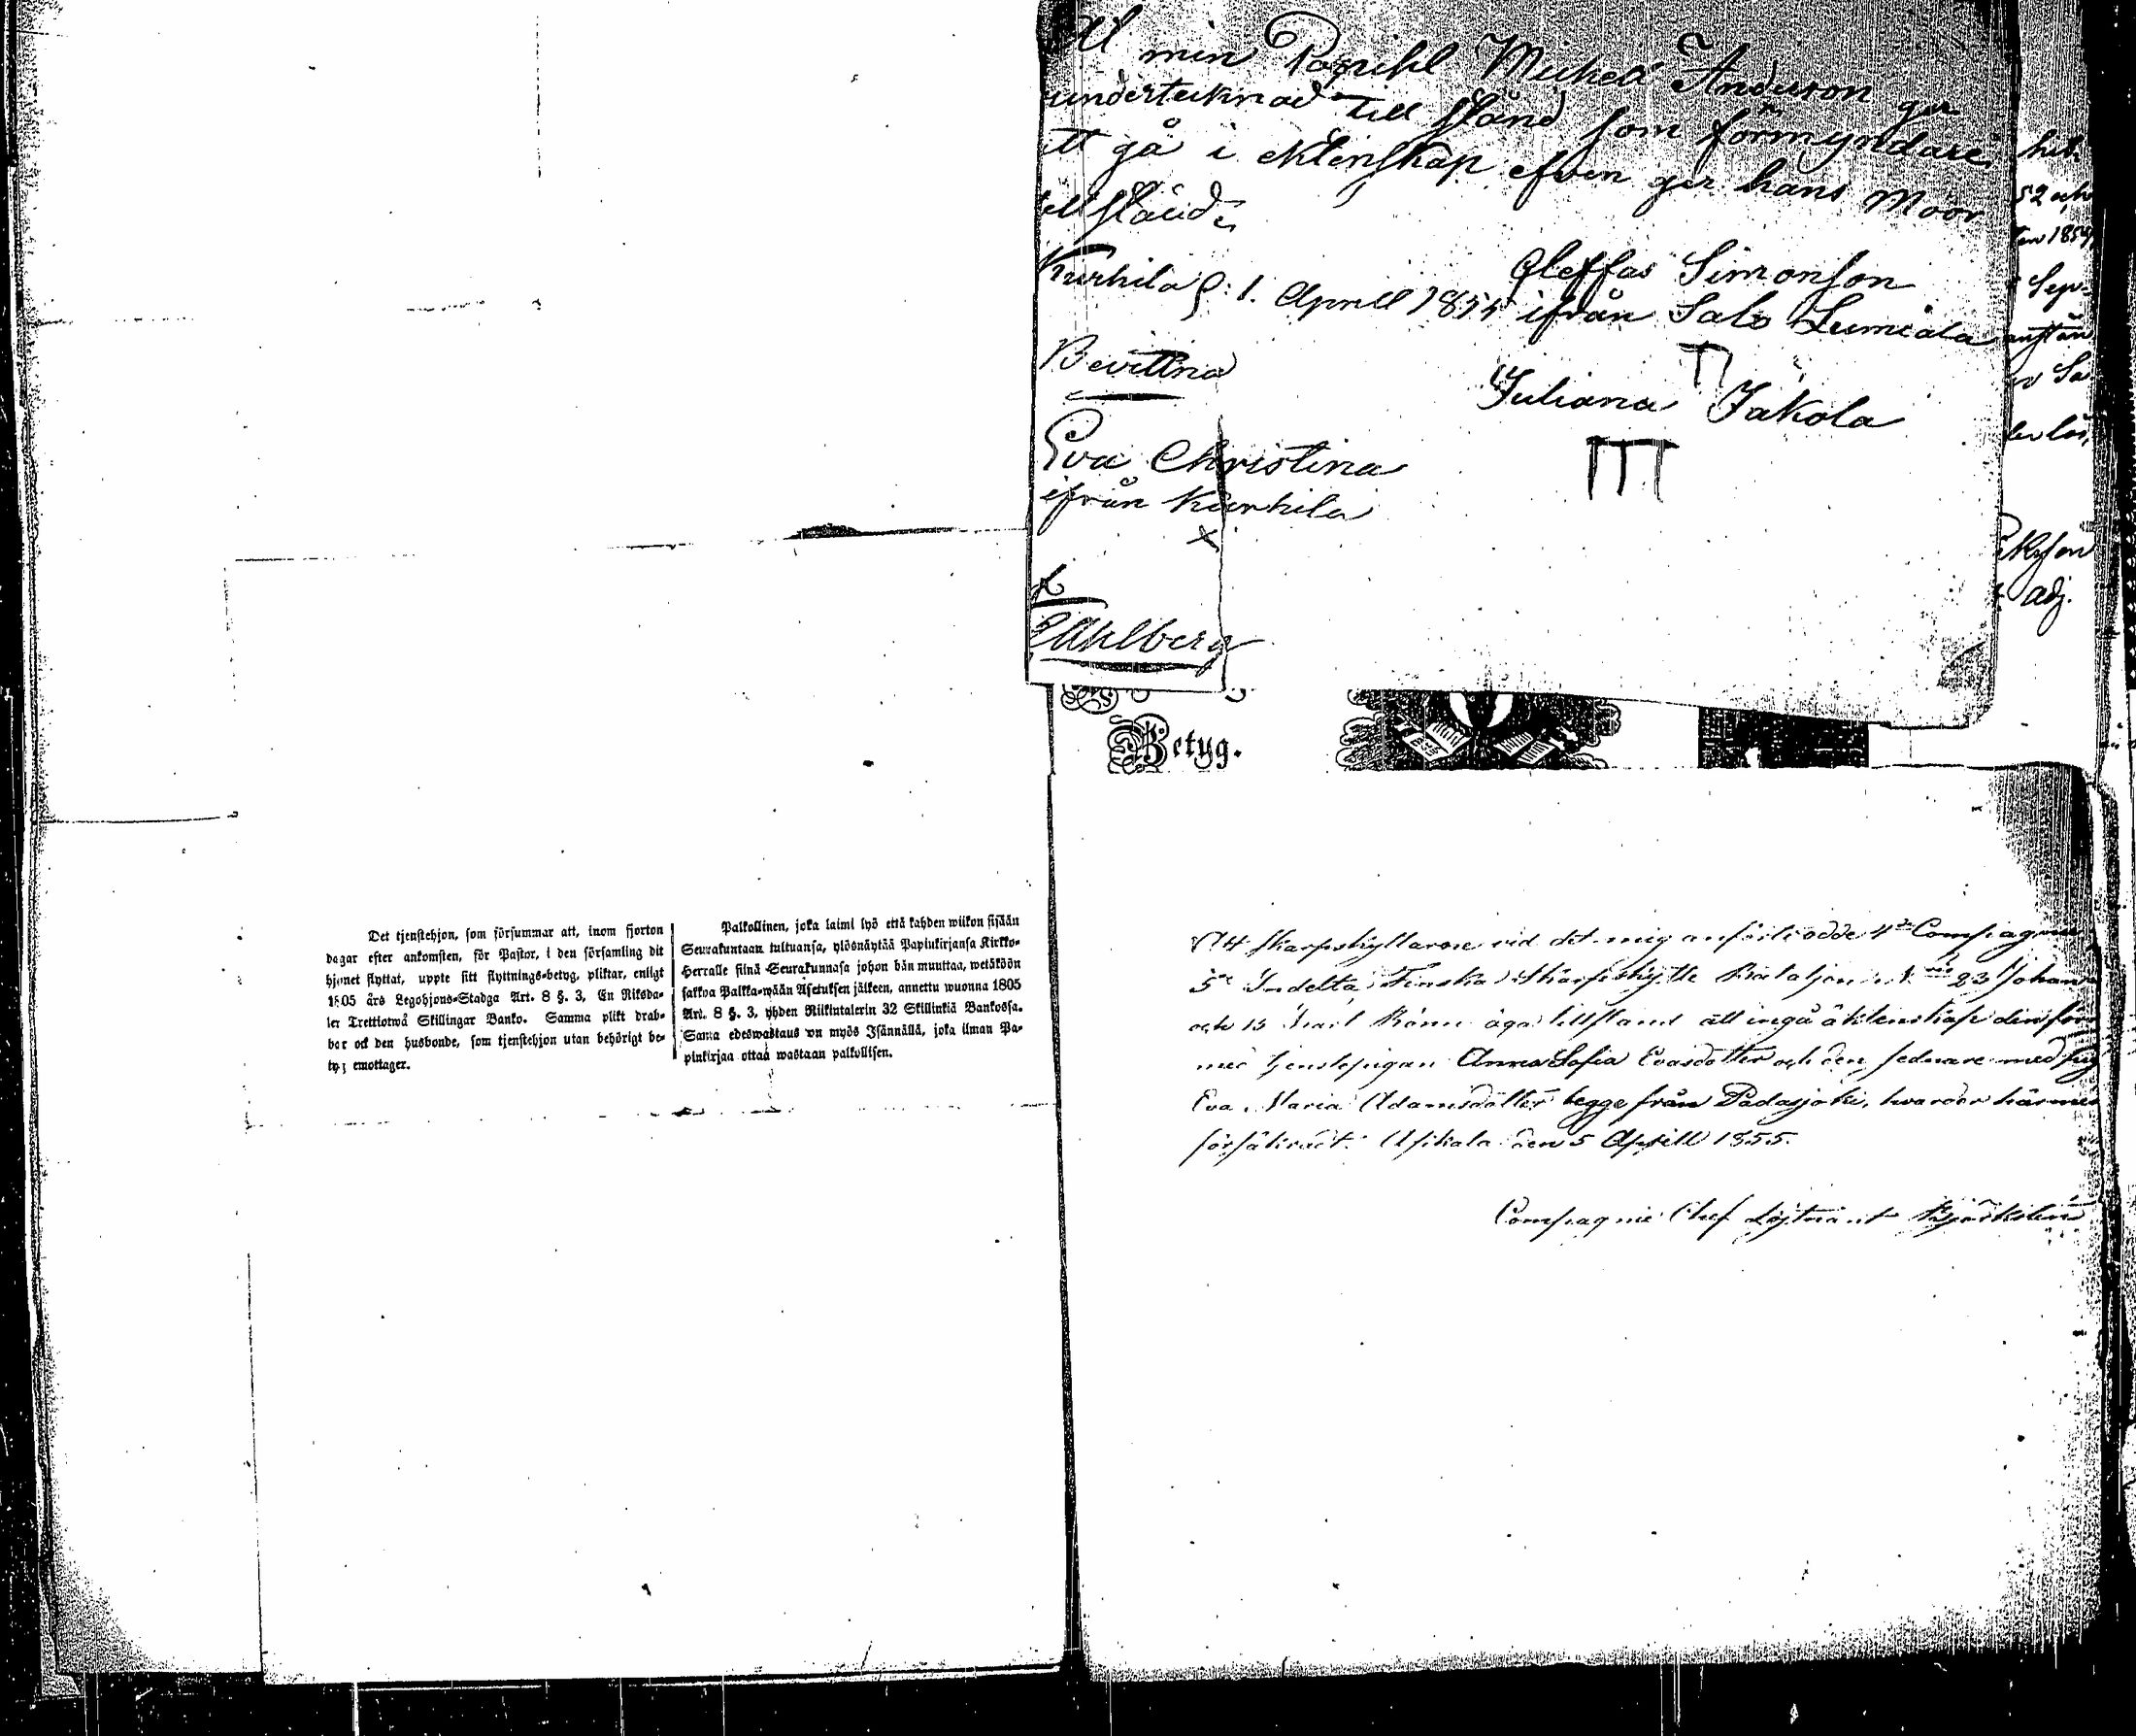 Det tjenstehjon, som försummar att, inom fjorton
dagar efter ankomsten, för Pastor, i den församling dit
hjonet flyttat, uppte sitt flyttnings-betyg, pliktar, enligt
1805 års Legohjons-Stadga Art. 8 §. 3, En Riksda-
ler Trettiotwå Skillingar Banko. Samma plikt drab-
bar ock den husbonde, som tjenstehjon utan behörigt be-
tyg emottager.
Palkollinen, joka laimi lyö että kahden wiikon sisään
Seurakuntaan tultuansa, ylösnäytää Papinkirjansa Kirkko-
Herralle siinä Seurakunnasa johon hän muuttaa, wetäköön
sakkoa Palkka-wään Asetuksen jälkeen, annettu wuonna 1805
Art. 8 §. 3, yhden Riikintalerin 32 Skillinkiä Bankossa.
Sama edeswastaus on myös Isännällä, joka ilman Pa-
pinkirjaa ottaa wastaan palkollisen.
min Michel Anderson ger
undertecknad till stånd som förmyndare
tt gå i ektenskap efven ger hans Moor
till stånd
Kurhila d: 1. Aprill 1855
Cleffas Simonson
ifrån Salo Lumiala
Bevittna
Juliana Jakola
Eva Christina
ifrån Kurhila
x
Ahlberg
52 och
Sep-
adj.
Betyg.
Att skarpskyttarne vid det mig anförtrodde 4de Compagnie
5te Indelta Finska Skarpskytte Bataljon, No 23 Johan
och 15 Karl Rönn äga tillstånd att ingå äktenskap den förr
med tjenstepigan Anna Sofia Evasdotter och den sednare med pig
Eva Maria Adamsdotter begge från Padasjoki, hvarder härmed
försäkradt. Asikala den 5 Aprill 1855.
Compagnie Chef Löjtnant Björkstén